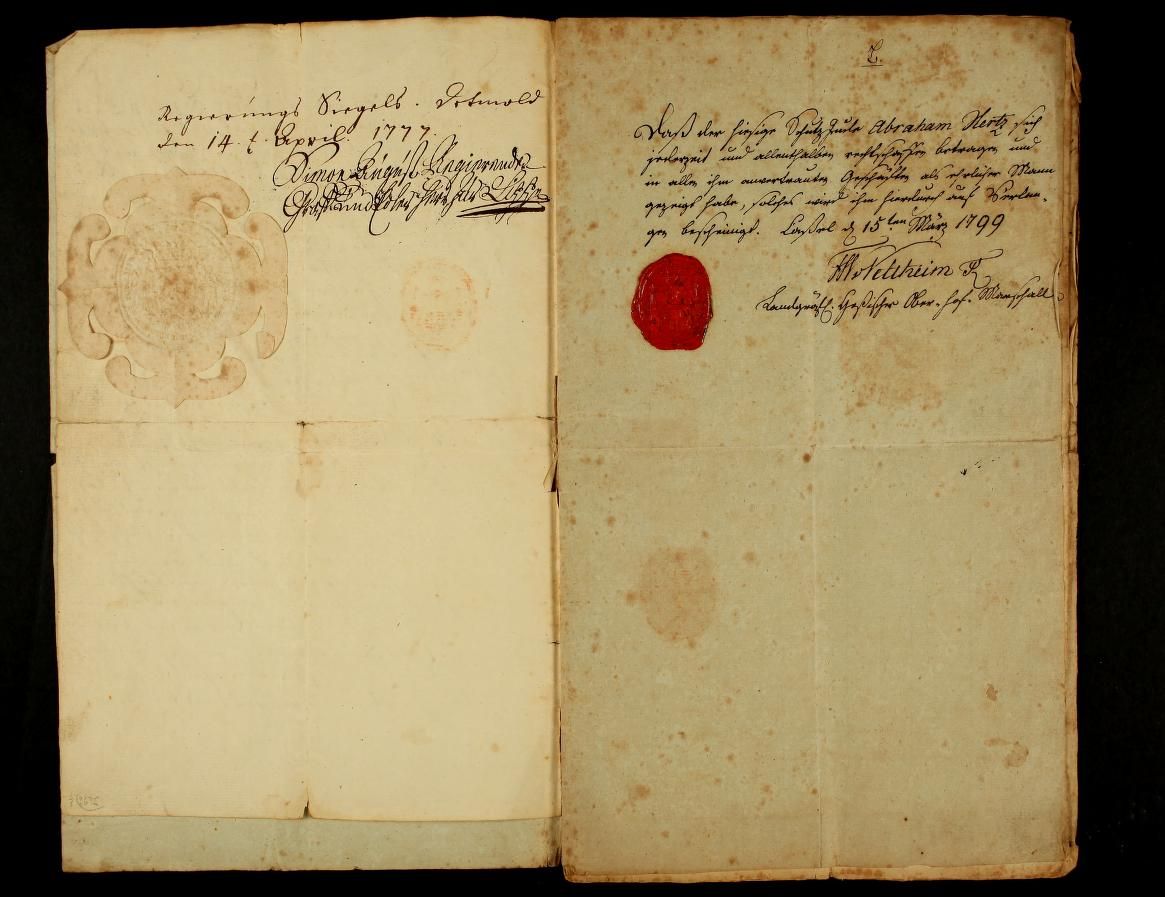 Regierungs Siegels. Detmold
den 14. t. April. 1777.
Simon August Regierender
Graf und Edler Herr zur Lippe
L.
Daß der hiesige Schutz Jude Abraham Hertz sich
jederzeit und allenthalben rechtschaffen betragen und
in allen ihm anvertrauten Geschäften als ehrlicher Mann
gezeigt habe, solches wird ihm hierdurch auf Verlan-
gen bescheinigt. Caßel d 15ten März 1799
Veltheim
Landgräfl. Heßischer Ober-Hof-Marschall